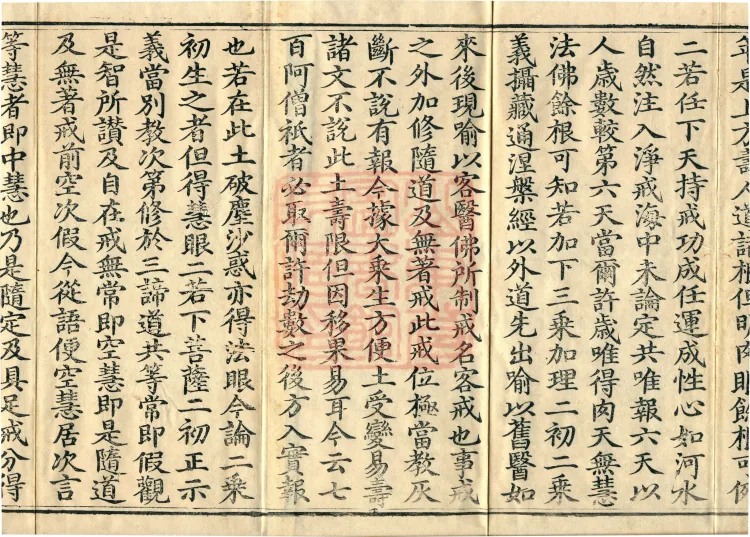 二若任下天持戒功成任運成性心如河水
自然注入淨戒海中未論定共唯報六天以
人歲數較第六天當爾許歲唯得肉天無慧
法佛餘根可知若加下三乘加理二初二乘
義攝藏通涅槃經以外道先出喻以舊醫如
來後現喻以客醫佛所制戒名客戒也事戒
之外加修隨道及無著戒此戒位極當教灰
斷不說有報今據大乘生方便土受變易壽
諸文不說此土壽限但因移果易耳今云七
百阿僧祇者必取爾許劫數之後方入實報
也若在此土破塵沙惑亦得法眼今論二乘
初生之者但得慧眼二若下菩薩二初正示
義當別教次第修於三諦道共等常即假觀
是智所讚及自在戒無常即空慧即是隨道
及無著戒前空次假今從語便空慧居次言
等慧者即中慧也乃是隨定及具足戒分得